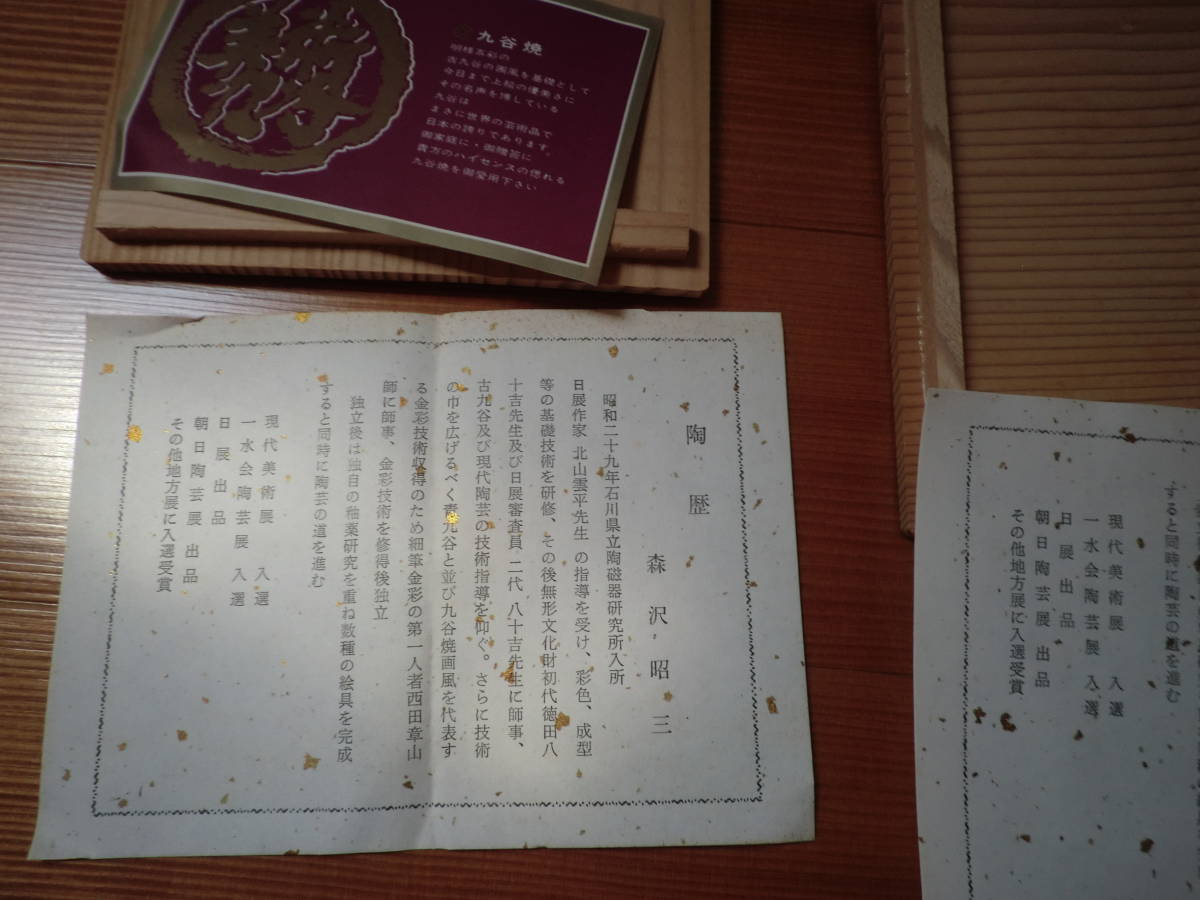 九谷焼
明様五彩の
古九谷の画風を基礎として
今日まで上絵の優美さに
その名声を博している
九谷は
まさに世界の芸術品で
日本の誇りであります。
御家庭に・御贈答に
貴方のハイセンスの惚れる
九谷焼を御愛用下さい
陶歴
森沢昭三
昭和二十九年石川県立陶磁器研究所入所
日展作家 北山雲平先生 の指導を受け、彩色、成型
等の基礎技術を研修、その後無形文化財初代徳田八
十吉先生及び日展審査員 二代 八十吉先生に師事、
古九谷及び現代陶芸の技術指導を仰ぐ。さらに技術
の巾を広げるべく青九谷と並び九谷焼画風を代表す
る金彩技術収得のため細筆金彩の第一人者西田章山
師に師事、金彩技術を修得後独立
独立後は独自の釉薬研究を重ね数種の絵具を完成
すると同時に陶芸の道を進む
現代美術展 入選
一水会陶芸展 入選
日展出品
朝日陶芸展 出品
その他地方展に入選受賞
すると同時に陶芸の道を進む
現代美術展 入選
一水会陶芸展 入選
日展出品
朝日陶芸展 出品
その他地方展に入選受賞